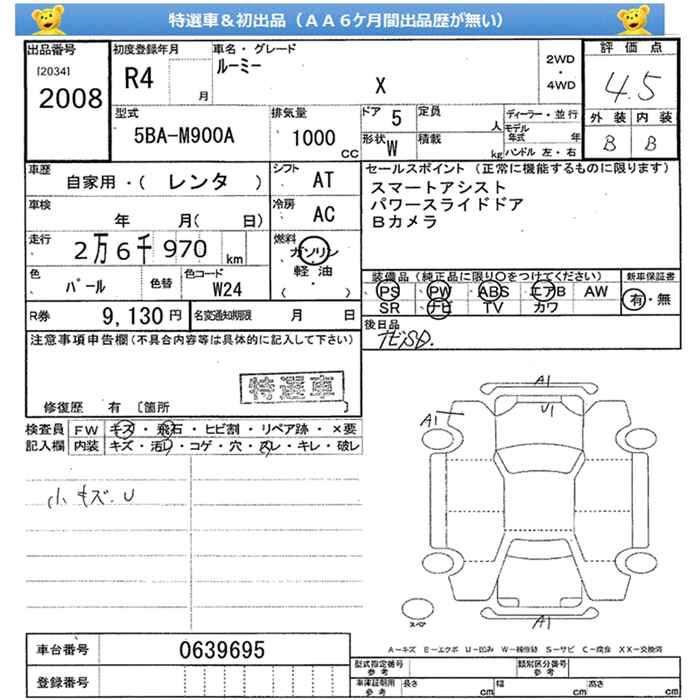 特選車＆初出品（ＡＡ６ケ月間出品歴が無い）
出品番号 初度登録年月 車名・グレード 評価点
[2034] R4 月 ルーミー X 2WD・4WD 4.5
2008
型式 排気量 ドア 5 定員 人 ディーラー・並行 外装 内装
5BA-M900A 1000 CC 形状 W 積載 kg モデル年式 年 B B
ハンドル 左・右
車歴 自家用・(レンタ) シフト AT セールスポイント（正常に機能するものに限ります）
車検 年 月( 日) 冷房 AC スマートアシスト
パワースライドドア
Bカメラ
走行 2万6千970 km 燃料 ガソリン
軽油
( ・ )
色 パール 色替 色コード W24
装備品（純正品に限り○をつけてください） 新車保証書
PS PW ABS エアB AW 有・無
SR ナビ TV カワ
R券 9,130円 名変通知期限 月 日
後日品
ナビSD.
注意事項申告欄（不具合内容等は具体的に記入して下さい）
特選車
修復歴 有 〔箇所
検査員記入欄 FW キズ・飛石・ヒビ割・リペア跡・×要
内装 キズ・汚レ・コゲ・穴・スレ・キレ・破レ
小キズ.U
A1
U1
A1
A1
スペア
A－キズ E－エクボ U－凹ミ W－補修跡 S－サビ C－腐食 XX－交換済
車台番号 0639695
登録番号
型式指定番号 参考 類別区分番号 参考
車庫証明用 参考 長さ cm 幅 cm 高さ cm